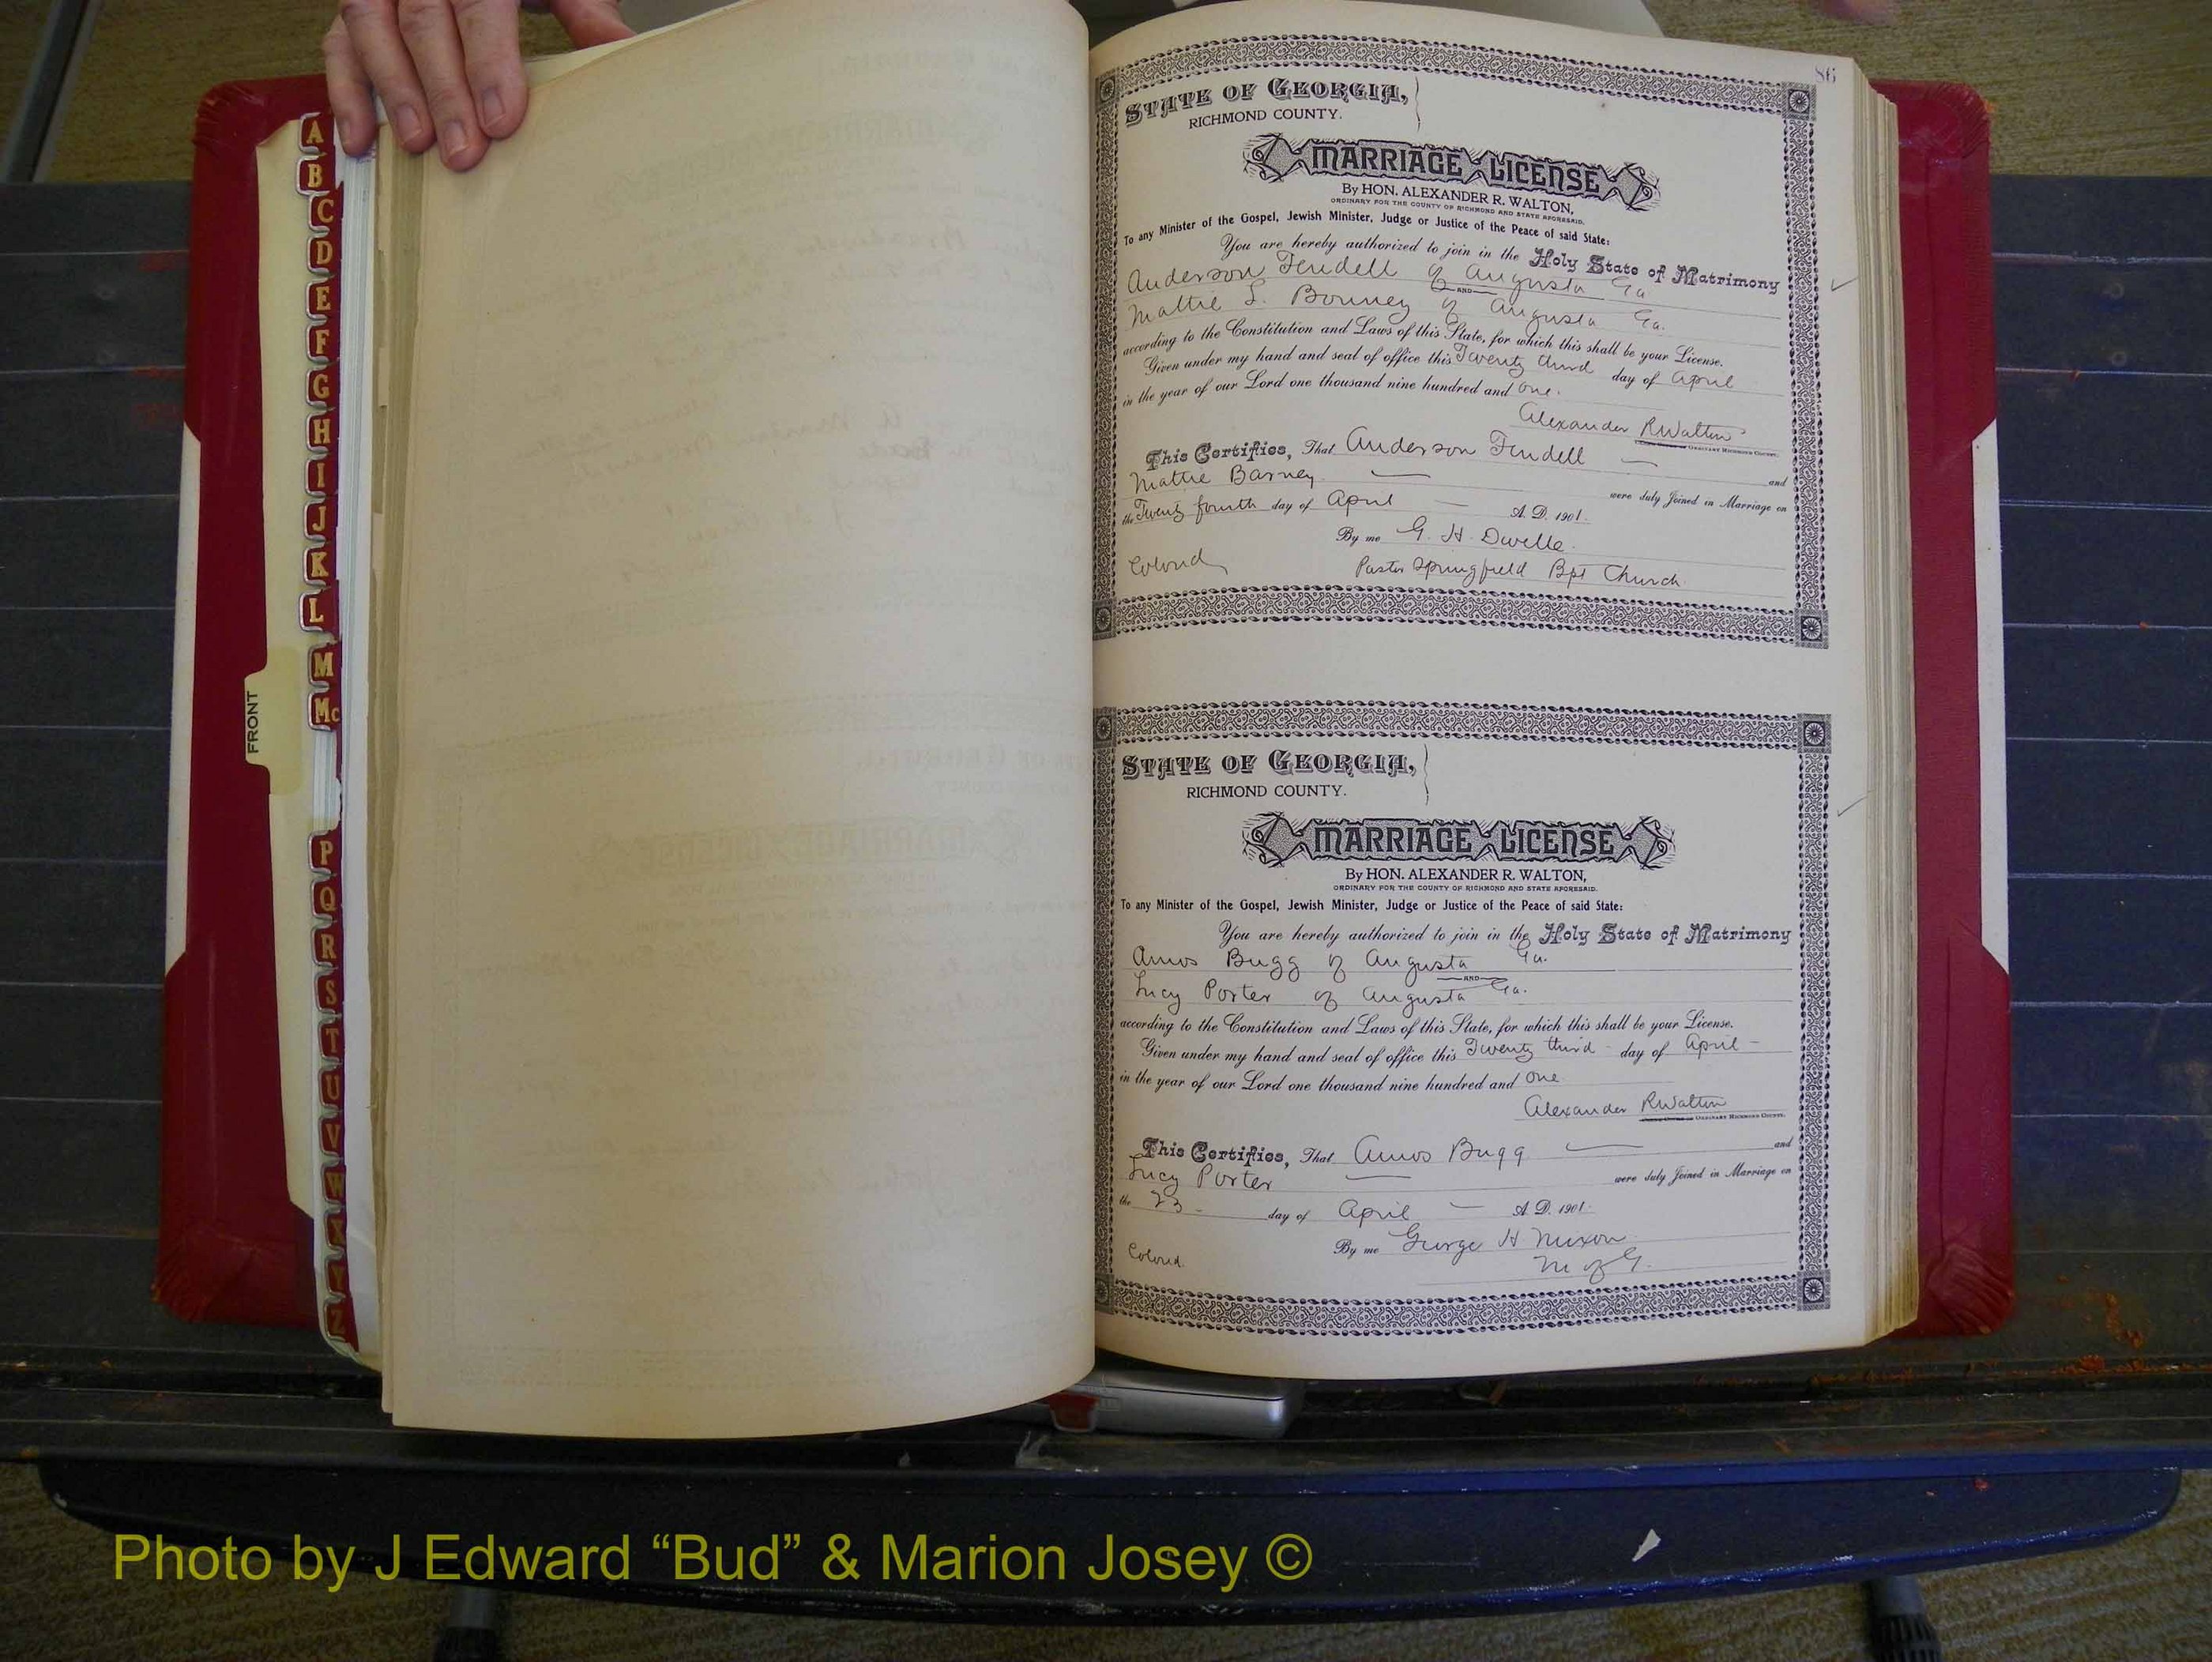 A
B
C
D
E
F
G
H
I
J
K
L
M
Mc
P
Q
R
S
T
U
V
W
X
Y
Z
FRONT
86
STATE OF GEORGIA,
RICHMOND COUNTY.
MARRIAGE LICENSE
By HON. ALEXANDER R. WALTON,
ORDINARY FOR THE COUNTY OF RICHMOND AND STATE AFORESAID.
To any Minister of the Gospel, Jewish Minister, Judge or Justice of the Peace of said State:
You are hereby authorized to join in the Holy State of Matrimony
Anderson Tendell of Augusta Ga
AND
Mattie L. Bonney of Augusta Ga.
according to the Constitution and Laws of this State, for which this shall be your License.
Given under my hand and seal of office this Twenty third day of April
in the year of our Lord one thousand nine hundred and One.
Alexander R Walton
ORDINARY RICHMOND COUNTY.
This Certifies, That Anderson Tendell and
Mattie Barney were duly Joined in Marriage on
the Twenty fourth day of April A. D. 1901.
By me G. H. Dwelle.
Colored Pastor Springfield Bpt Church
STATE OF GEORGIA,
RICHMOND COUNTY.
MARRIAGE LICENSE
By HON. ALEXANDER R. WALTON,
ORDINARY FOR THE COUNTY OF RICHMOND AND STATE AFORESAID.
To any Minister of the Gospel, Jewish Minister, Judge or Justice of the Peace of said State:
You are hereby authorized to join in the Holy State of Matrimony
Amos Bugg of Augusta Ga.
AND
Lucy Porter of Augusta Ga.
according to the Constitution and Laws of this State, for which this shall be your License.
Given under my hand and seal of office this Twenty third day of April
in the year of our Lord one thousand nine hundred and One
Alexander R Walton
ORDINARY RICHMOND COUNTY.
This Certifies, That Amos Bugg and
Lucy Porter were duly Joined in Marriage on
the 23 day of April A. D. 1901.
By me George H Nixon
Colored. M of G.
Photo by J Edward “Bud” & Marion Josey ©